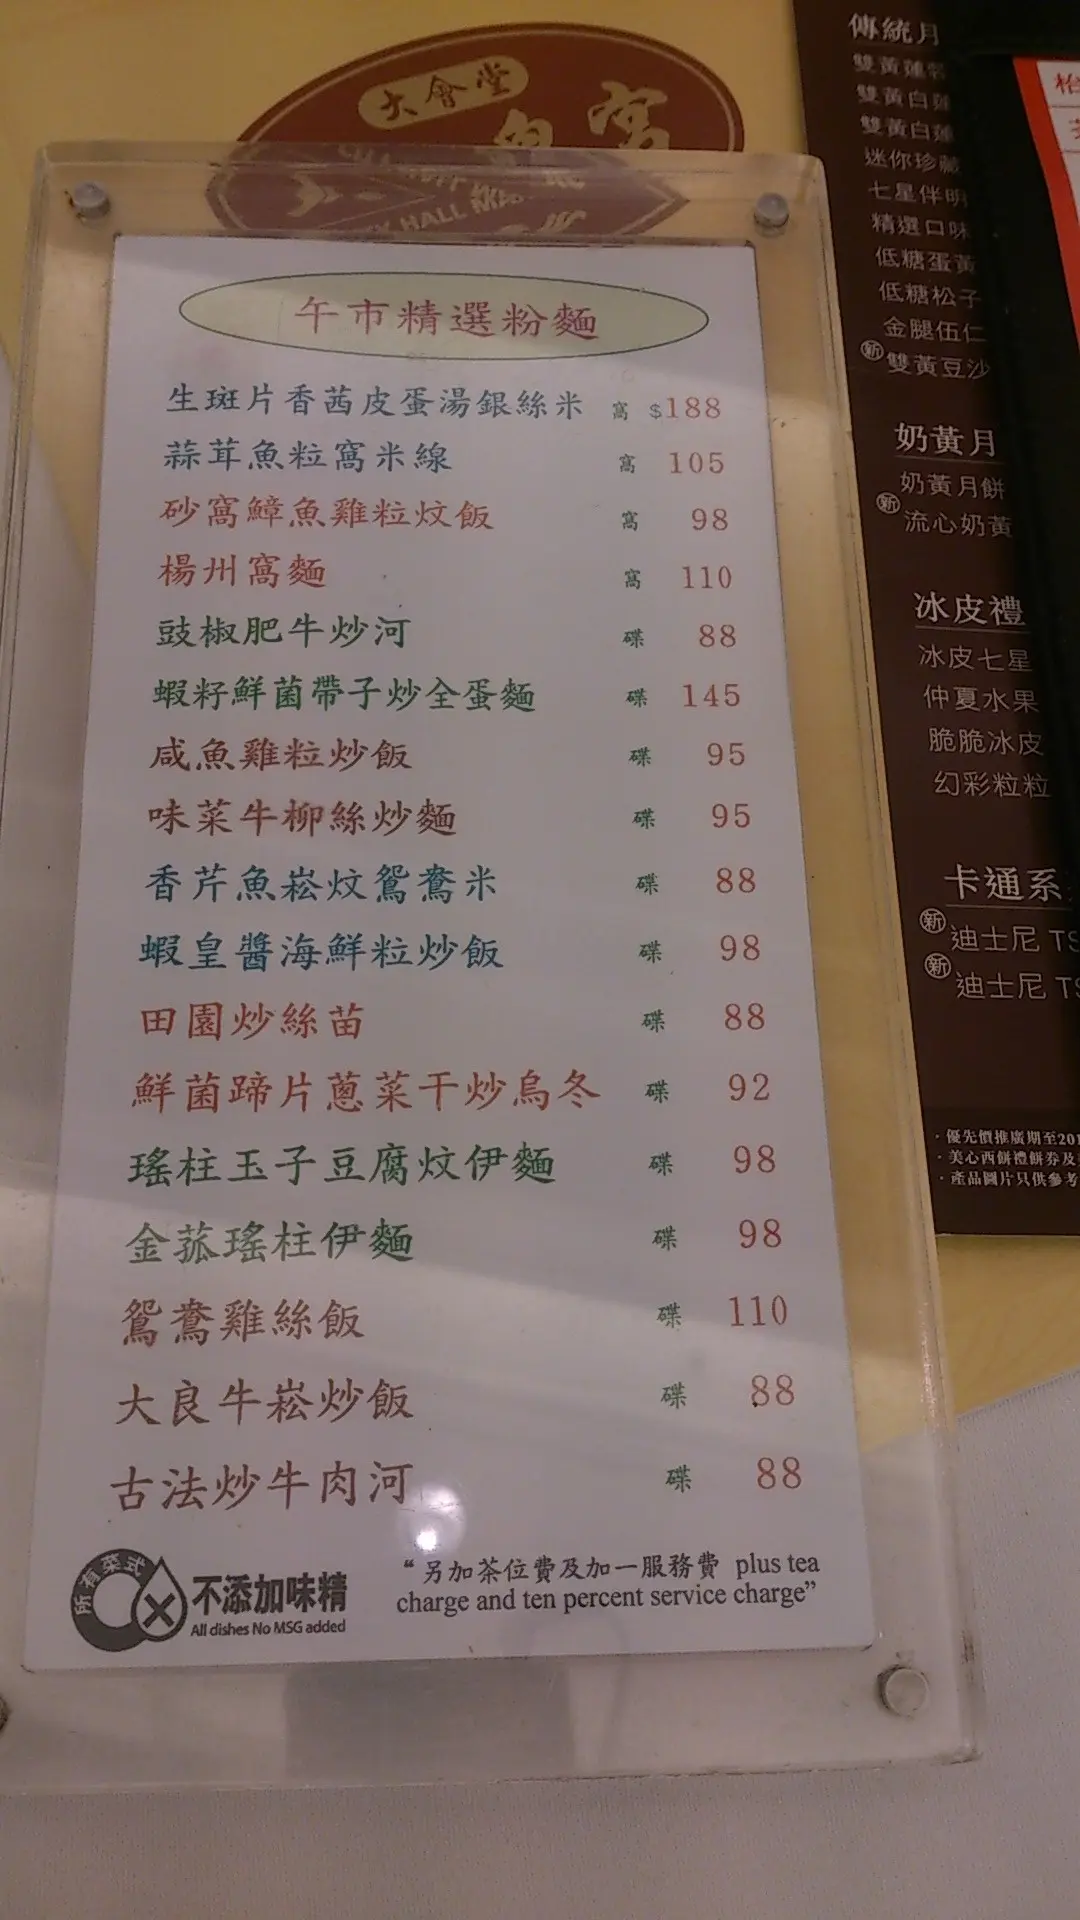 大會堂
HALL MA
午市精選粉麵
生斑片香茜皮蛋湯銀絲米 窩 $188
蒜茸魚粒窩米線 窩 105
砂窩鱆魚雞粒炆飯 窩 98
楊州窩麵 窩 110
豉椒肥牛炒河 碟 88
蝦籽鮮菌帶子炒全蛋麵 碟 145
咸魚雞粒炒飯 碟 95
味菜牛柳絲炒麵 碟 95
香芹魚崧炆鴛鴦米 碟 88
蝦皇醬海鮮粒炒飯 碟 98
田園炒絲苗 碟 88
鮮菌蹄片蔥菜干炒烏冬 碟 92
瑤柱玉子豆腐炆伊麵 碟 98
金菰瑤柱伊麵 碟 98
鴛鴦雞絲飯 碟 110
大良牛崧炒飯 碟 88
古法炒牛肉河 碟 88
所有菜式
不添加味精
All dishes No MSG added
“另加茶位費及加一服務費 plus tea
charge and ten percent service charge”
傳統月
雙黃蓮蓉
雙黃白蓮
雙黃白蓮
迷你珍藏
七星伴明
精選口味
低糖蛋黃
低糖松子
金腿伍仁
新 雙黃豆沙
奶黃月
奶黃月餅
新 流心奶黃
冰皮禮
冰皮七星
仲夏水果
脆脆冰皮
幻彩粒粒
卡通系
新 迪士尼 TS
新 迪士尼 TS
· 優先價推廣期至201
· 美心西餅禮餅券及
· 產品圖片只供參考